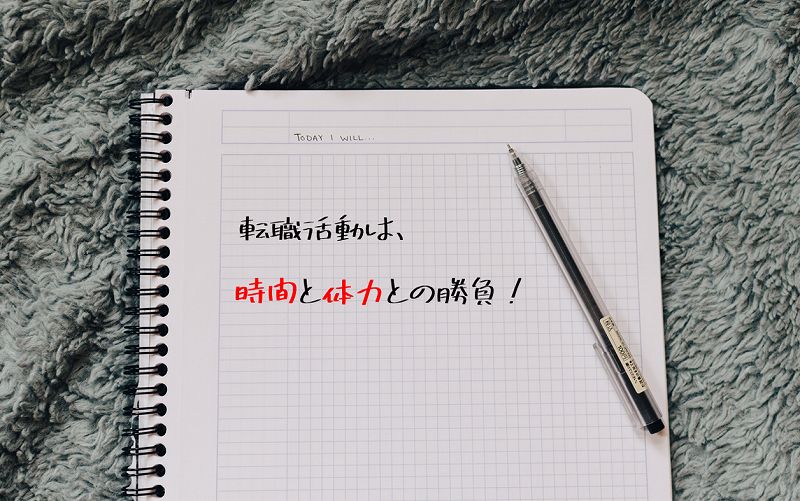 TODAY I WILL...
転職活動は、
時間と体力との勝負！